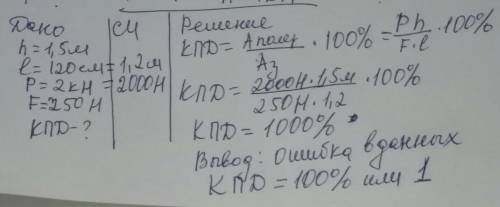 Дано
h=1,5м
l=120см=1,2м
P=2кН=2000Н
F=250Н
КПД-?
СИ
Решение
КПД = Aполез/Aз · 100% = Ph/F·l · 100%
КПД = 2000Н·1,5м/250Н·1,2 · 100%
КПД = 1000%
Вывод: Ошибка в данных
КПД = 100% или 1